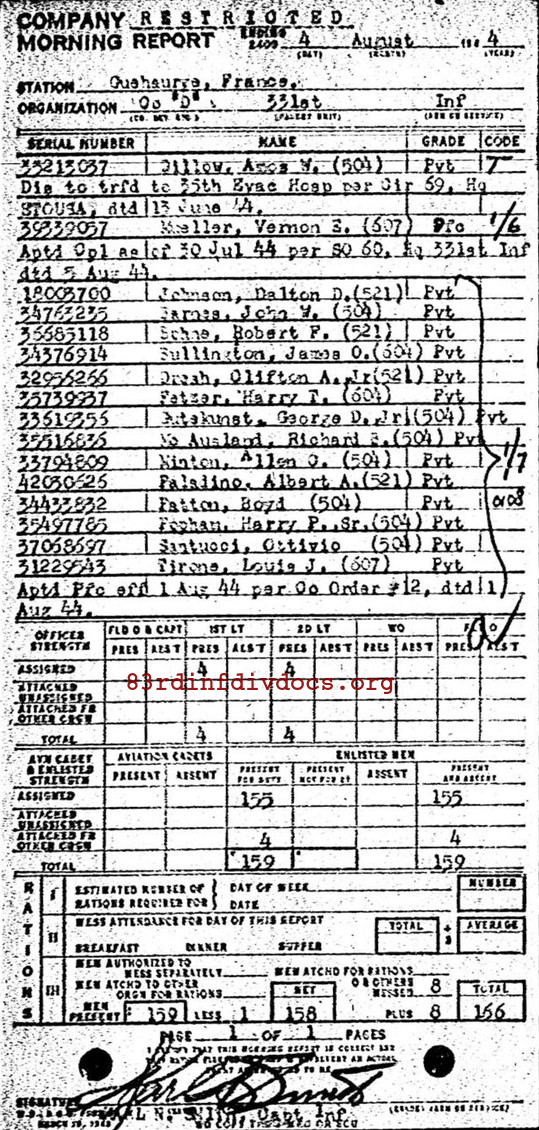 COMPANY RESTRICTED
MORNING REPORT ENDING 2400 4 August 194 4
(DAY) (MONTH) (YEAR)
STATION France.
ORGANIZATION Co "D" 331st Inf
(CO. DET. ETC.) (PARENT UNIT) (ARM OR SERVICE)
SERIAL NUMBER NAME GRADE CODE
33213037 Dillow, Amos W. (504) Pvt T
Dis to trfd to 35th Evac Hosp per Cir 69, Hq
ETOUSA, dtd 13 June 44.
39339057 Mueller, Vernon E. (607) Pfc 1/6
Aptd Cpl as of 30 Jul 44 per SO 60, Hq 331st Inf
dtd 5 Aug 44.
18003700 Johnson, Dalton D.(521) Pvt
34763235 Barnes, John W. (504) Pvt
36685118 Robert F. (521) Pvt
34376914 Bullington, James O.(604) Pvt
32956266 Clifton A. Jr(521) Pvt
35739937 Fetzer, Harry T. (604) Pvt
33619356 Gutekunst, George D. Jr(504) Pvt
35516836 Mc Ausland, Richard (504) Pvt
33794809 Minton, Allen G. (504) Pvt 1/7
42030626 Paladino, Albert A.(521) Pvt
34433832 Patton, Boyd (504) Pvt
35497785 Harry P. Sr.(504) Pvt
37068697 Santucci, Ottivio (504) Pvt
31229543 Tirone, Louis J. (607) Pvt
Aptd Pfc eff 1 Aug 44 per Co Order #12, dtd 1
Aug 44.
OFFICER STRENGTH FLD O & CAPT 1ST LT 2D LT WO F/O
PRES ABST PRES ABST PRES ABST PRES ABST PRES ABST
ASSIGNED 4 4
83rdinfdivdocs.org
ATTACHED UNASSIGNED
ATTACHED FR OTHER ORGN
TOTAL 4 4
AVN CADET & ENLISTED STRENGTH AVIATION CADETS ENLISTED MEN
PRESENT ABSENT PRESENT FOR DUTY PRESENT NOT FOR DY ABSENT PRESENT AND ABSENT
ASSIGNED 155 155
ATTACHED UNASSIGNED
ATTACHED FR OTHER ORGN 4 4
TOTAL 159 159
RATIONS
I ESTIMATED NUMBER OF RATIONS REQUIRED FOR DAY OF WEEK DATE NUMBER
II MESS ATTENDANCE FOR DAY OF THIS REPORT TOTAL ÷ 3 AVERAGE
BREAKFAST DINNER SUPPER
III MEN AUTHORIZED TO MESS SEPARATELY MEN ATCHD FOR RATIONS
MEN ATCHD TO OTHER ORGN FOR RATIONS NET OR OTHERS MESSED 8 TOTAL
MEN PRESENT 159 LESS 1 158 PLUS 8 166
PAGE 1 OF 1 PAGES
SIGNATURE
Capt Inf